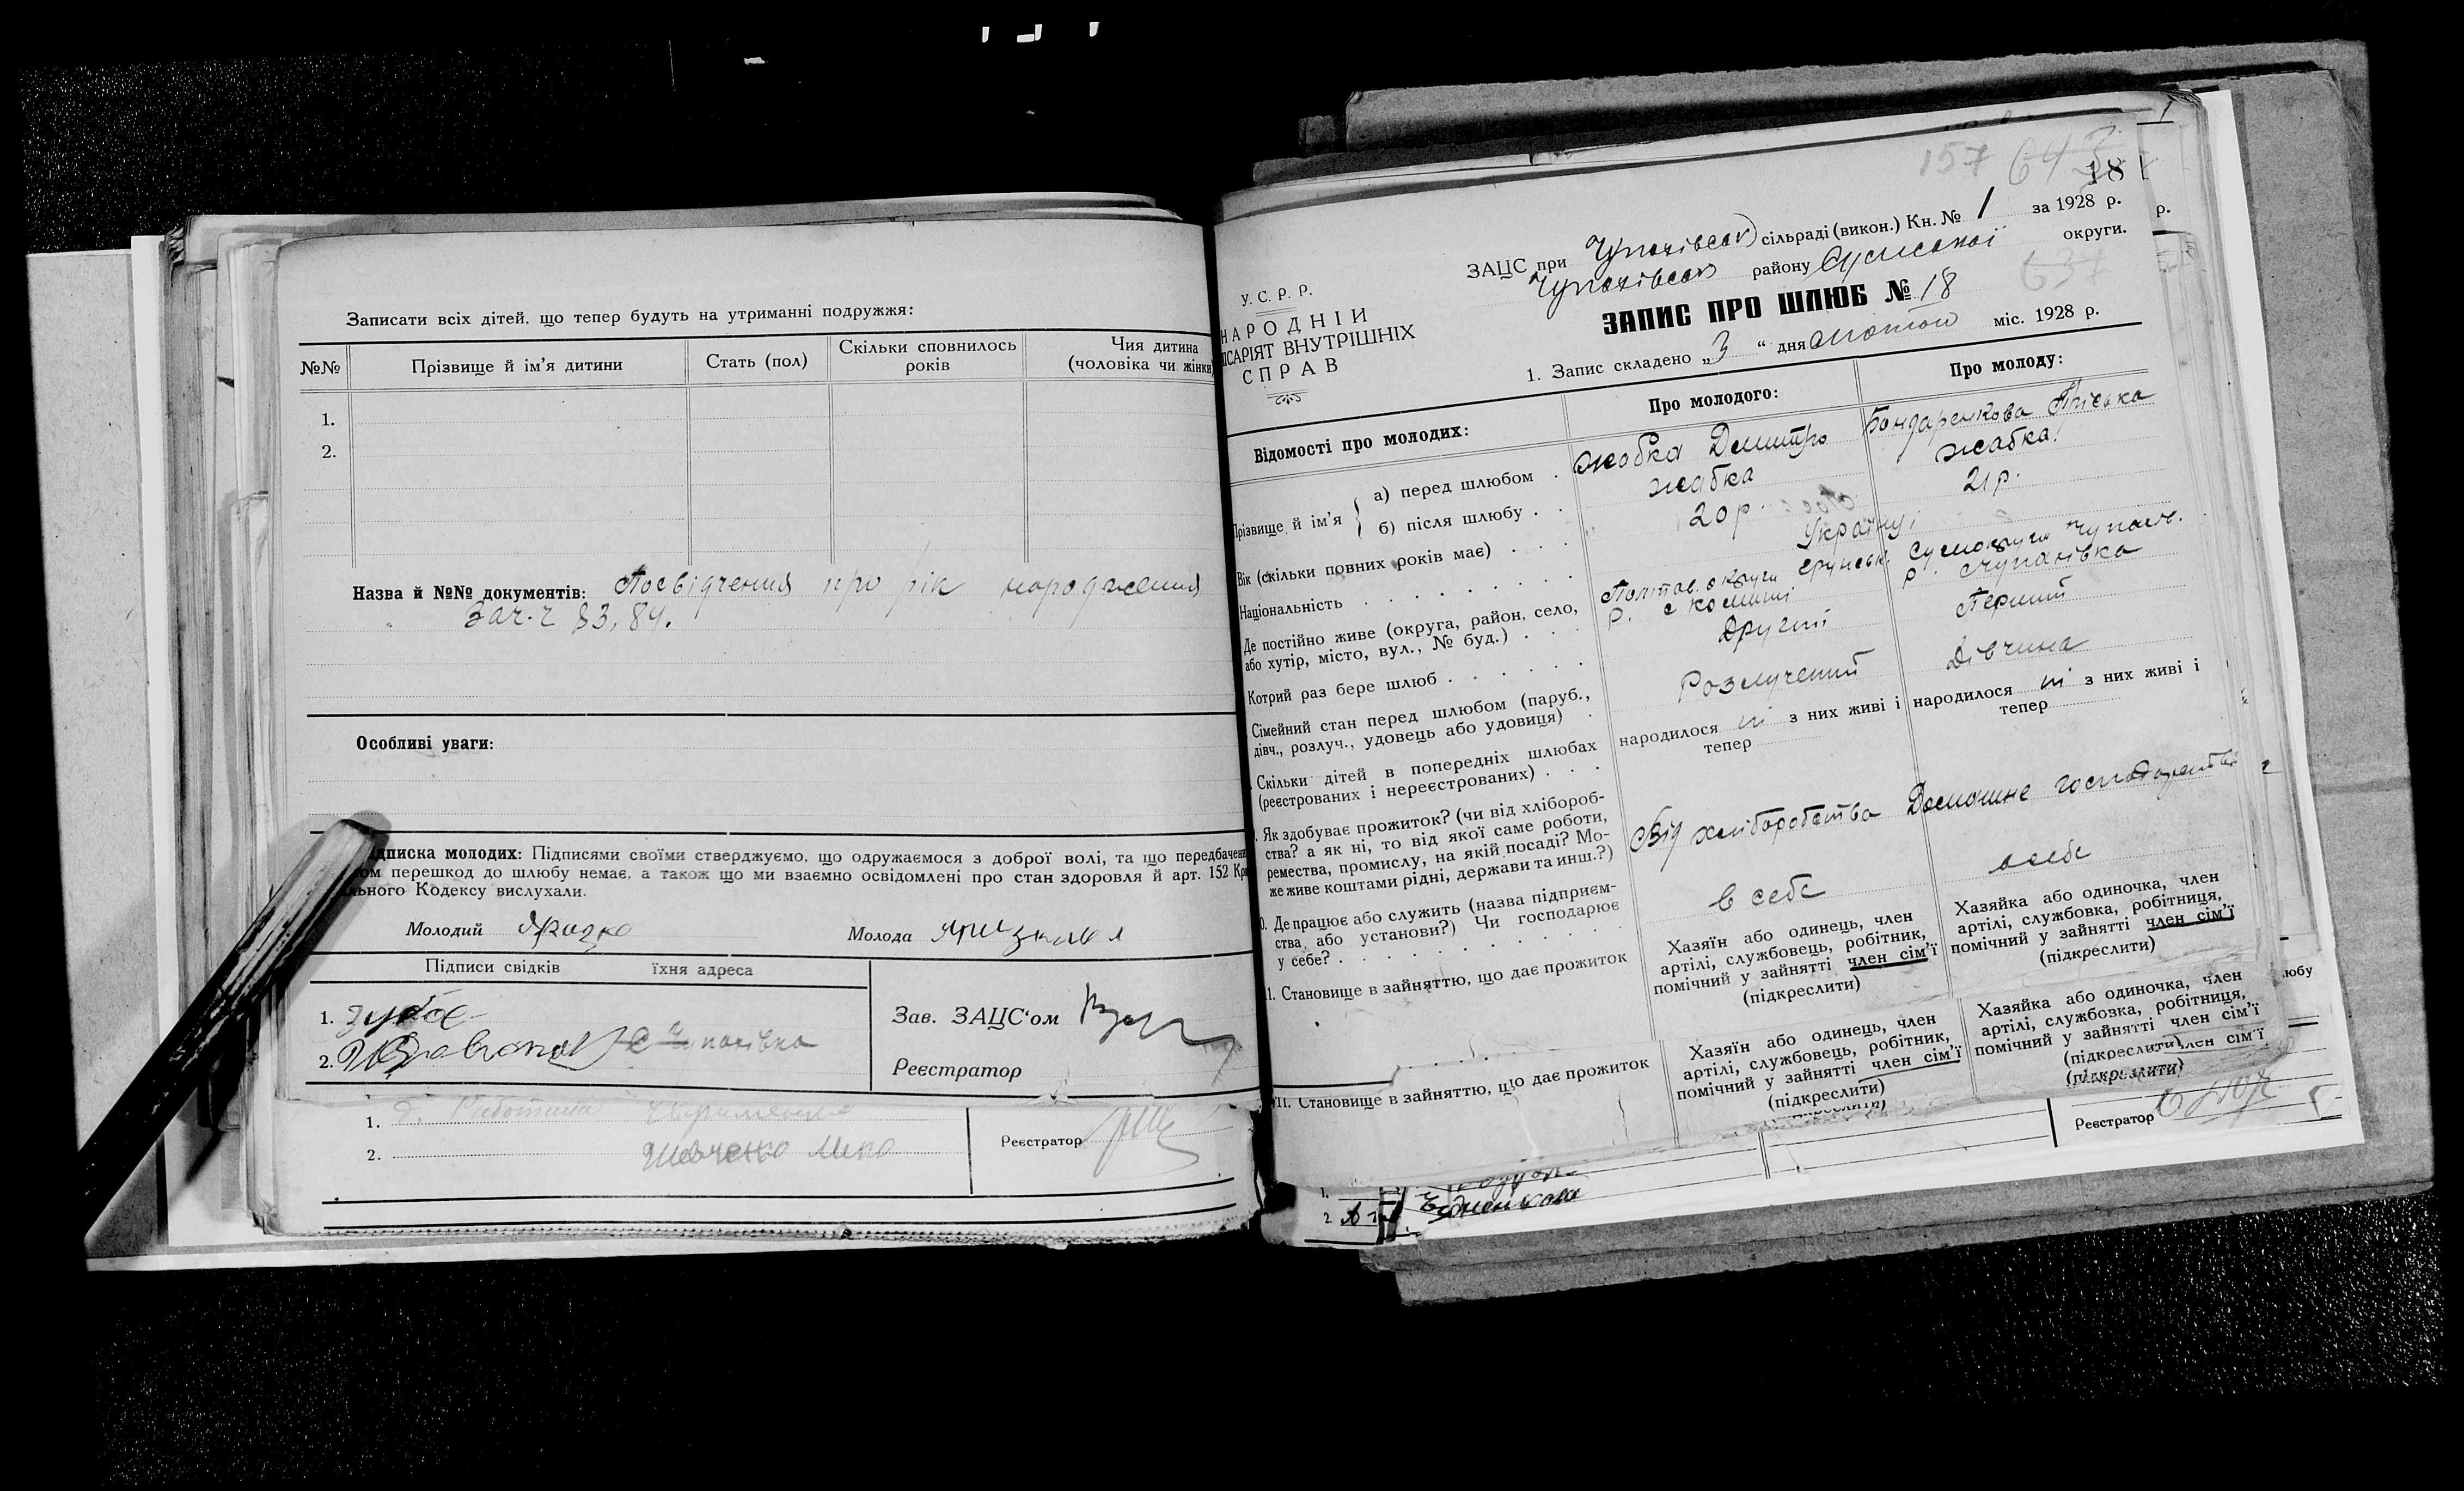 Записати всіх дітей, що тепер будуть на утриманні подружжя:
№№ Прізвище й ім'я дитини Стать (пол) Скільки сповнилось років Чия дитина (чоловіка чи жінки)
1.
2.
Назва й №№ документів: Посвідчення про рік народження
За ч. ч 83, 84.
Особливі уваги:
дписка молодих: Підписями своїми стверджуємо, що одружаємося з доброї волі, та що передбачени
ом перешкод до шлюбу немає, а також що ми взаємно освідомлені про стан здоровля й арт. 152 Кри
льного Кодексу вислухали.
Молодий
Молода
Підписи свідків їхня адреса
1.
2. с Чупахівка
Зав. ЗАЦС'ом
Реєстратор
1.
2. Шевченко
Реєстратор
157 643
18
У. С. Р. Р.
НАРОДНІЙ
ІСАРІЯТ ВНУТРІШНІХ
СПРАВ
ЗАЦС при Чупахівськ сільраді (викон.) Кн. № 1 за 1928 р.
Чупахівськ району Сумської округи.
637
ЗАПИС ПРО ШЛЮБ № 18
1. Запис складено „3“ дня лютого міс. 1928 р.
Відомості про молодих: Про молодого: Про молоду:
Прізвище й ім'я а) перед шлюбом . Жабка Дмитро Бондаренкова Пріська
б) після шлюбу . . жабка жабка.
Вік (скільки повних років має) . . . 20 р. 21 р.
Національність . . . . . . . . Україну;
Де постійно живе (округа, район, село, Полтав. округи Грунськ. Сумокруги Чупахів.
або хутір, місто, вул., № буд.) . . . р. с Р. с Чупахівка
Котрий раз бере шлюб . . . . . . Другий Перший
Сімейний стан перед шлюбом (паруб.,
дівч., розлуч., удовець або удовиця) . Розлучений Дівчина
Скільки дітей в попередніх шлюбах народилося ні з них живі і народилося ні з них живі і
(реєстрованих і нереєстрованих) . . . тепер тепер
Як здобуває прожиток? (чи від хлібороб-
ства? а як ні, то від якої саме роботи, Від хліборобства Домашнє господарство
ремества, промислу, на якій посаді? Мо-
же живе коштами рідні, держави та инш.?)
0. Де працює або служить (назва підприєм-
ства, або установи?) Чи господарює в себе в себе
у себе? . . . . . . . . . . .
11. Становище в зайняттю, що дає прожиток
Хазяїн або одинець, член
артілі, службовець, робітник,
помічний у зайнятті член сім'ї
(підкреслити)
Хазяйка або одиночка, член
артілі, службовка, робітниця,
помічний у зайнятті член сім'ї
(підкреслити)
11. Становище в зайняттю, що дає прожиток
Хазяїн або одинець, член
артілі, службовець, робітник,
помічний у зайнятті член сім'ї
(підкреслити)
Хазяйка або одиночка, член
артілі, службовка, робітниця,
помічний у зайнятті член сім'ї
(підкреслити)
член сім'ї
(підкреслити)
Реєстратор
1.
2.